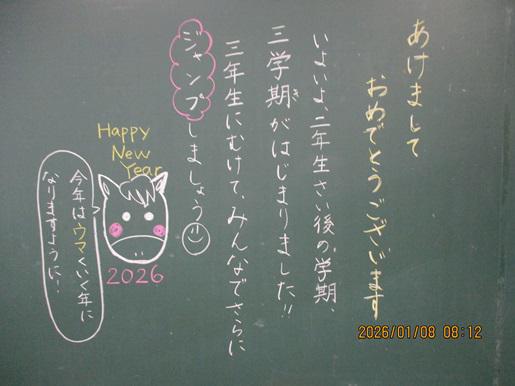 あけまして
おめでとうございます
いよいよ、二年生さい後の学期、
三学期がはじまりました!!
き
三年生にむけて、みんなでさらに
ジャンプしましょう
Happy
New
Year
2026
今年はウマくいく年に
なりますように!
2026/01/08 08:12